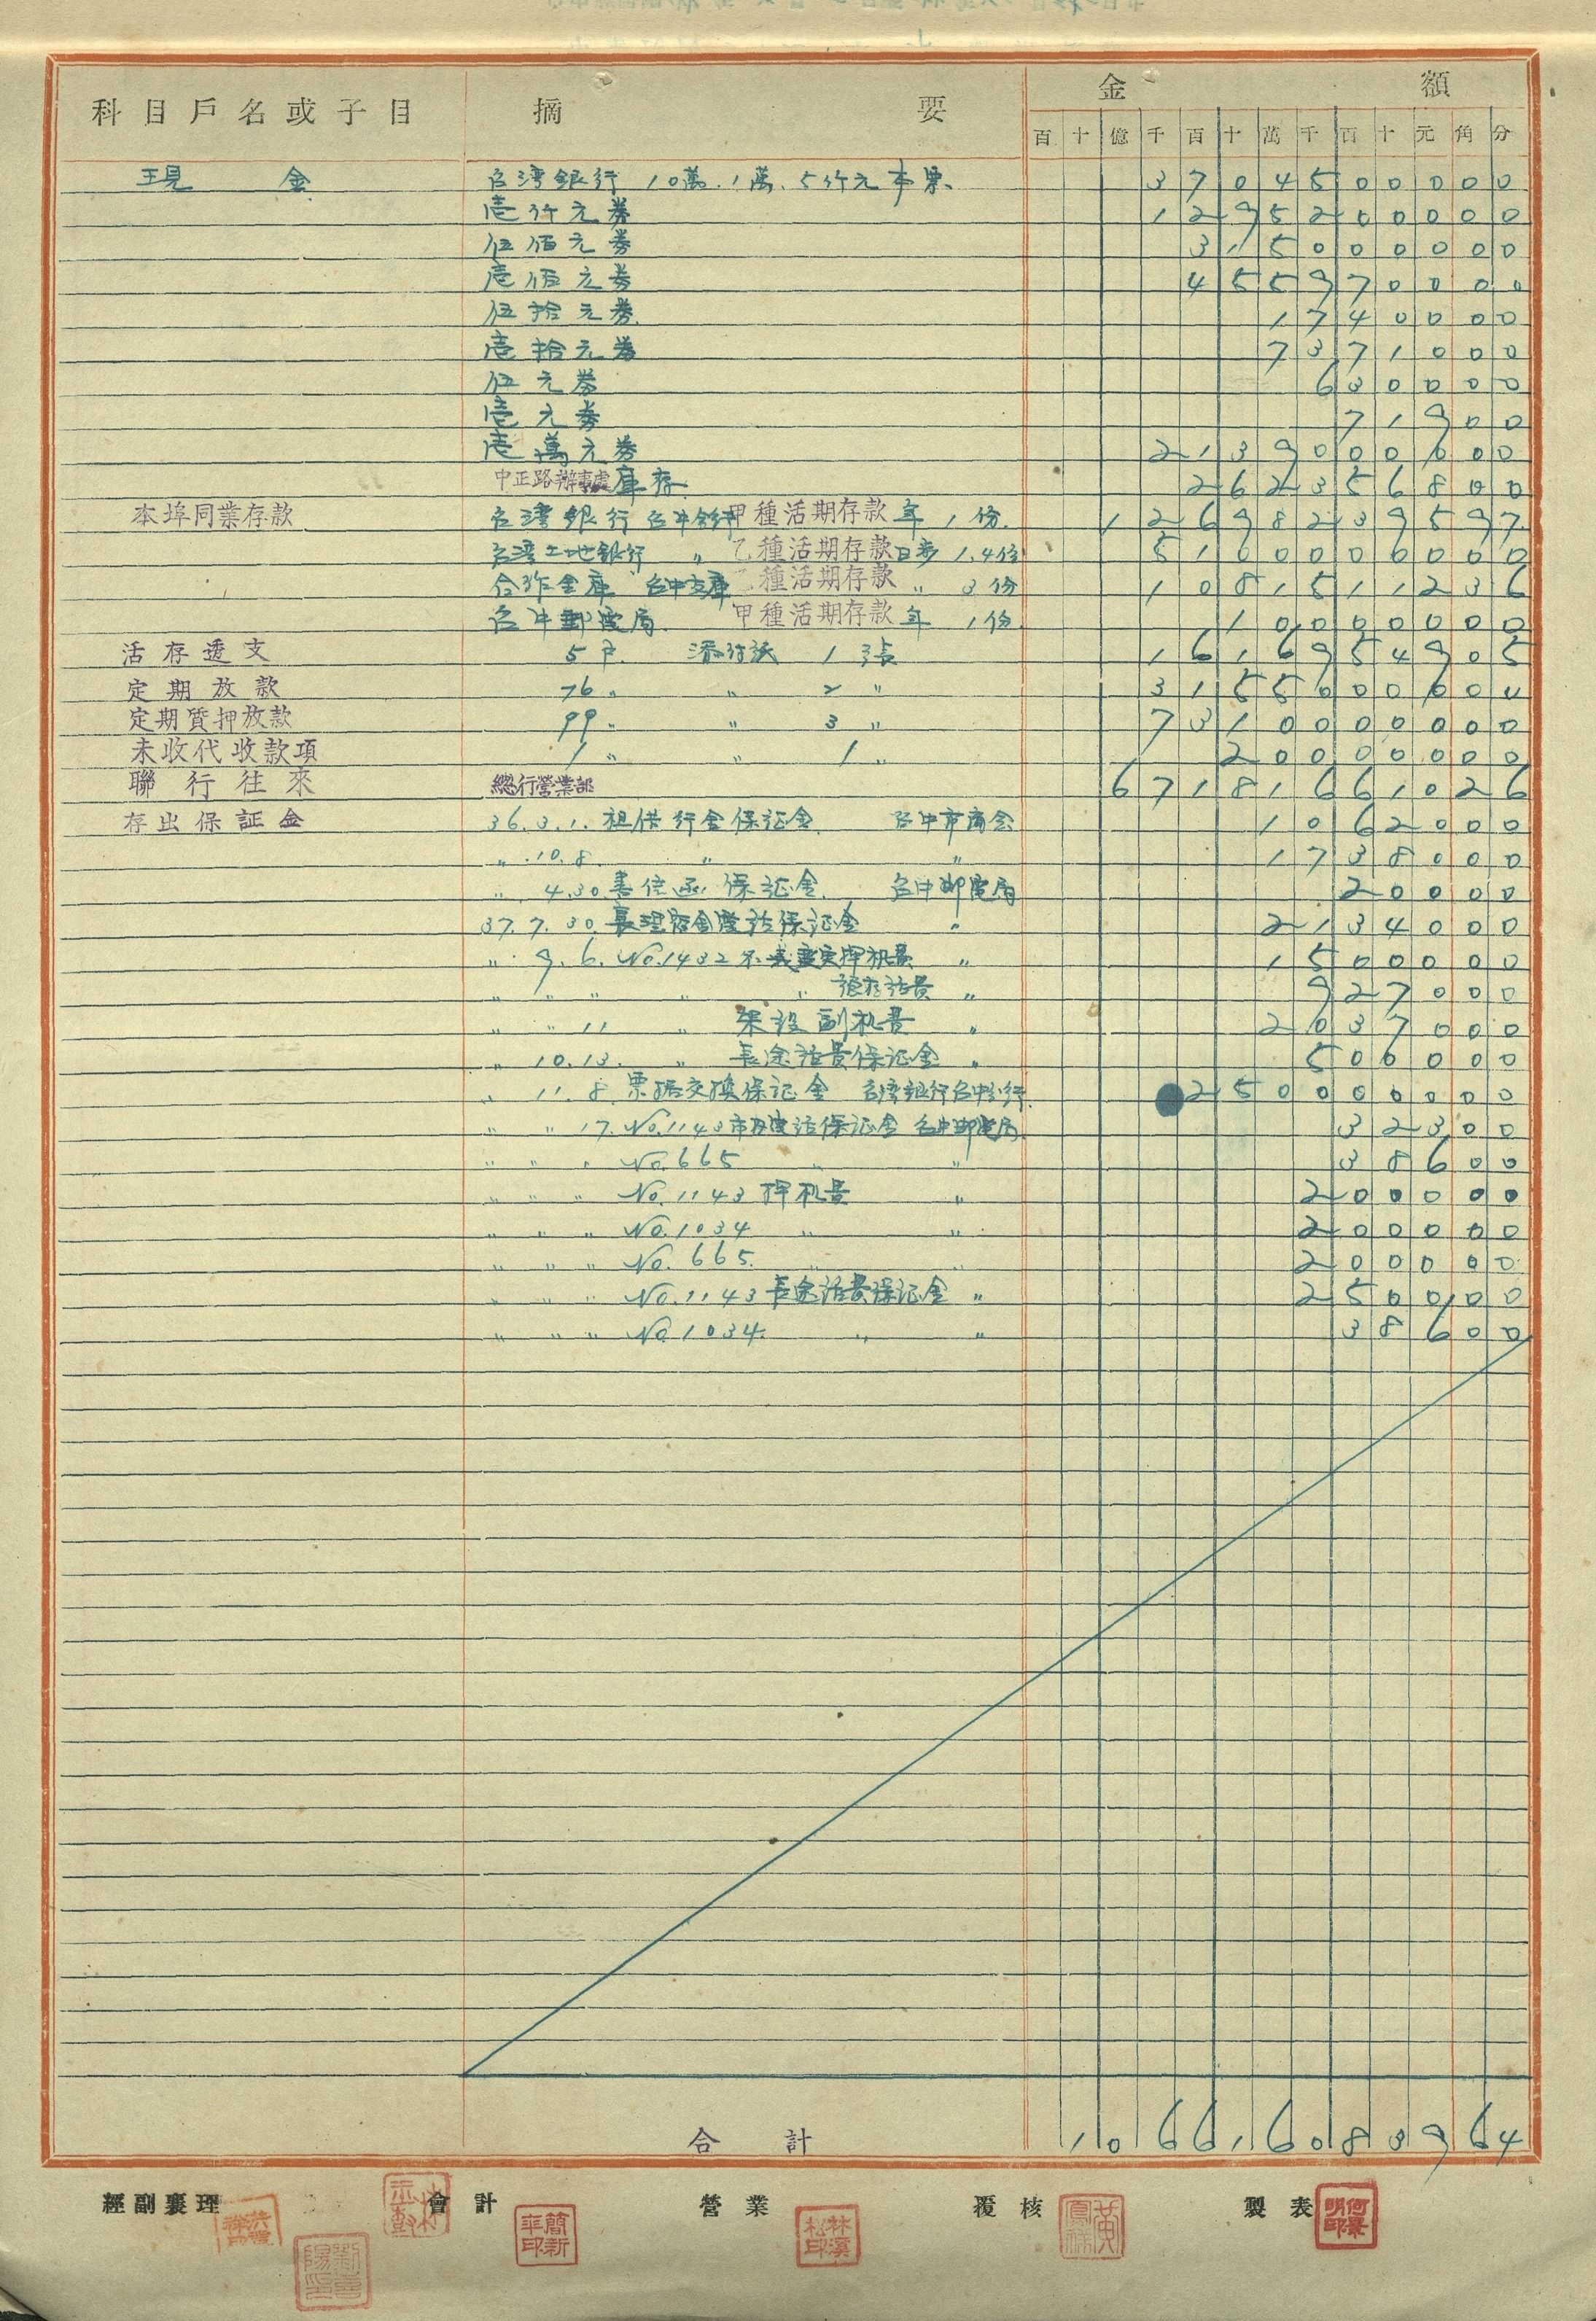 科目戶名或子目 摘要 金額
百 十 億 千 百 十 萬 千 百 十 元 角 分
現金 台湾銀行 10萬.1萬.5仟元本票 3704500000
壱仟元券 1295200000
伍佰元券 315000000
壱佰元券 455970000
伍拾元券 1740000
壱拾元券 7371000
伍元券 630000
壱元券 71900
壱萬元券 2139000000
中正路辦事處庫存 262356800
本埠同業存款 台湾銀行台中分行甲種活期存款 年1份 12698239597
台湾土地銀行 〃 乙種活期存款日歩1.4份 5100000000
合作金庫 台中支庫 乙種活期存款 〃 3份 1081511236
台中郵電局 甲種活期存款 年1份 10000000
活存透支 5戶 添付紙 1張 1616954905
定期放款 76〃 〃 2〃 3155000000
定期質押放款 99〃 〃 3〃 7310000000
未收代收款項 1〃 〃 1〃 20000000
聯行往來 總行營業部 67181661026
存出保証金 36.3.1. 租借行舍保証金 台中市商会 1062000
〃.10.8. 〃 〃 1738000
〃 4.30. 書信函保証金 台中郵電局 20000
37.7.30. 襄理宿舍電話保証金 〃 2134000
〃 9.6. No.1432 押机費 〃 1500000
〃 〃 〃 〃 〃 話費 〃 927000
〃 〃 11 〃 架設副机費 〃 2037000
〃 10.13. 〃 長途話費保証金 〃 500000
〃 11.8. 票據交換保証金 台湾銀行台中分行 250000000
〃 〃 17. No.1143市內電話保証金 台中郵電局 32300
〃 〃 〃 No.665 〃 〃 38600
〃 〃 〃 No.1143 押机費 〃 200000
〃 〃 〃 No.1034 〃 〃 200000
〃 〃 〃 No.665. 〃 〃 200000
〃 〃 〃 No.1143 長途話費保証金 〃 250000
〃 〃 〃 No.1034. 〃 〃 38600
合計 106616083964
經副襄理 會計 營業 覆核 製表
簡新平印 林溪松印 何景明印